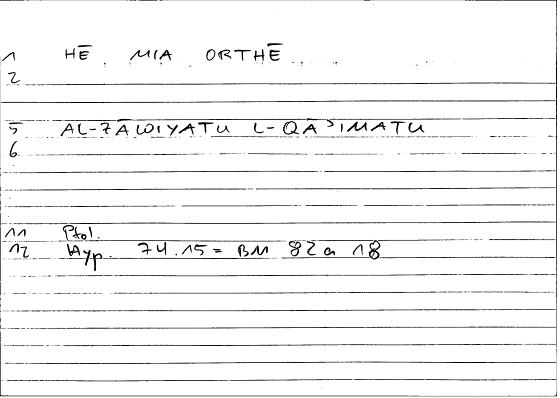 1 HĒ MIA ORTHĒ
2
5 AL-ZĀWIYATU L-QĀʾIMATU
6
11 Ptol.
12 Hyp. 74.15 = BM 82 a 18